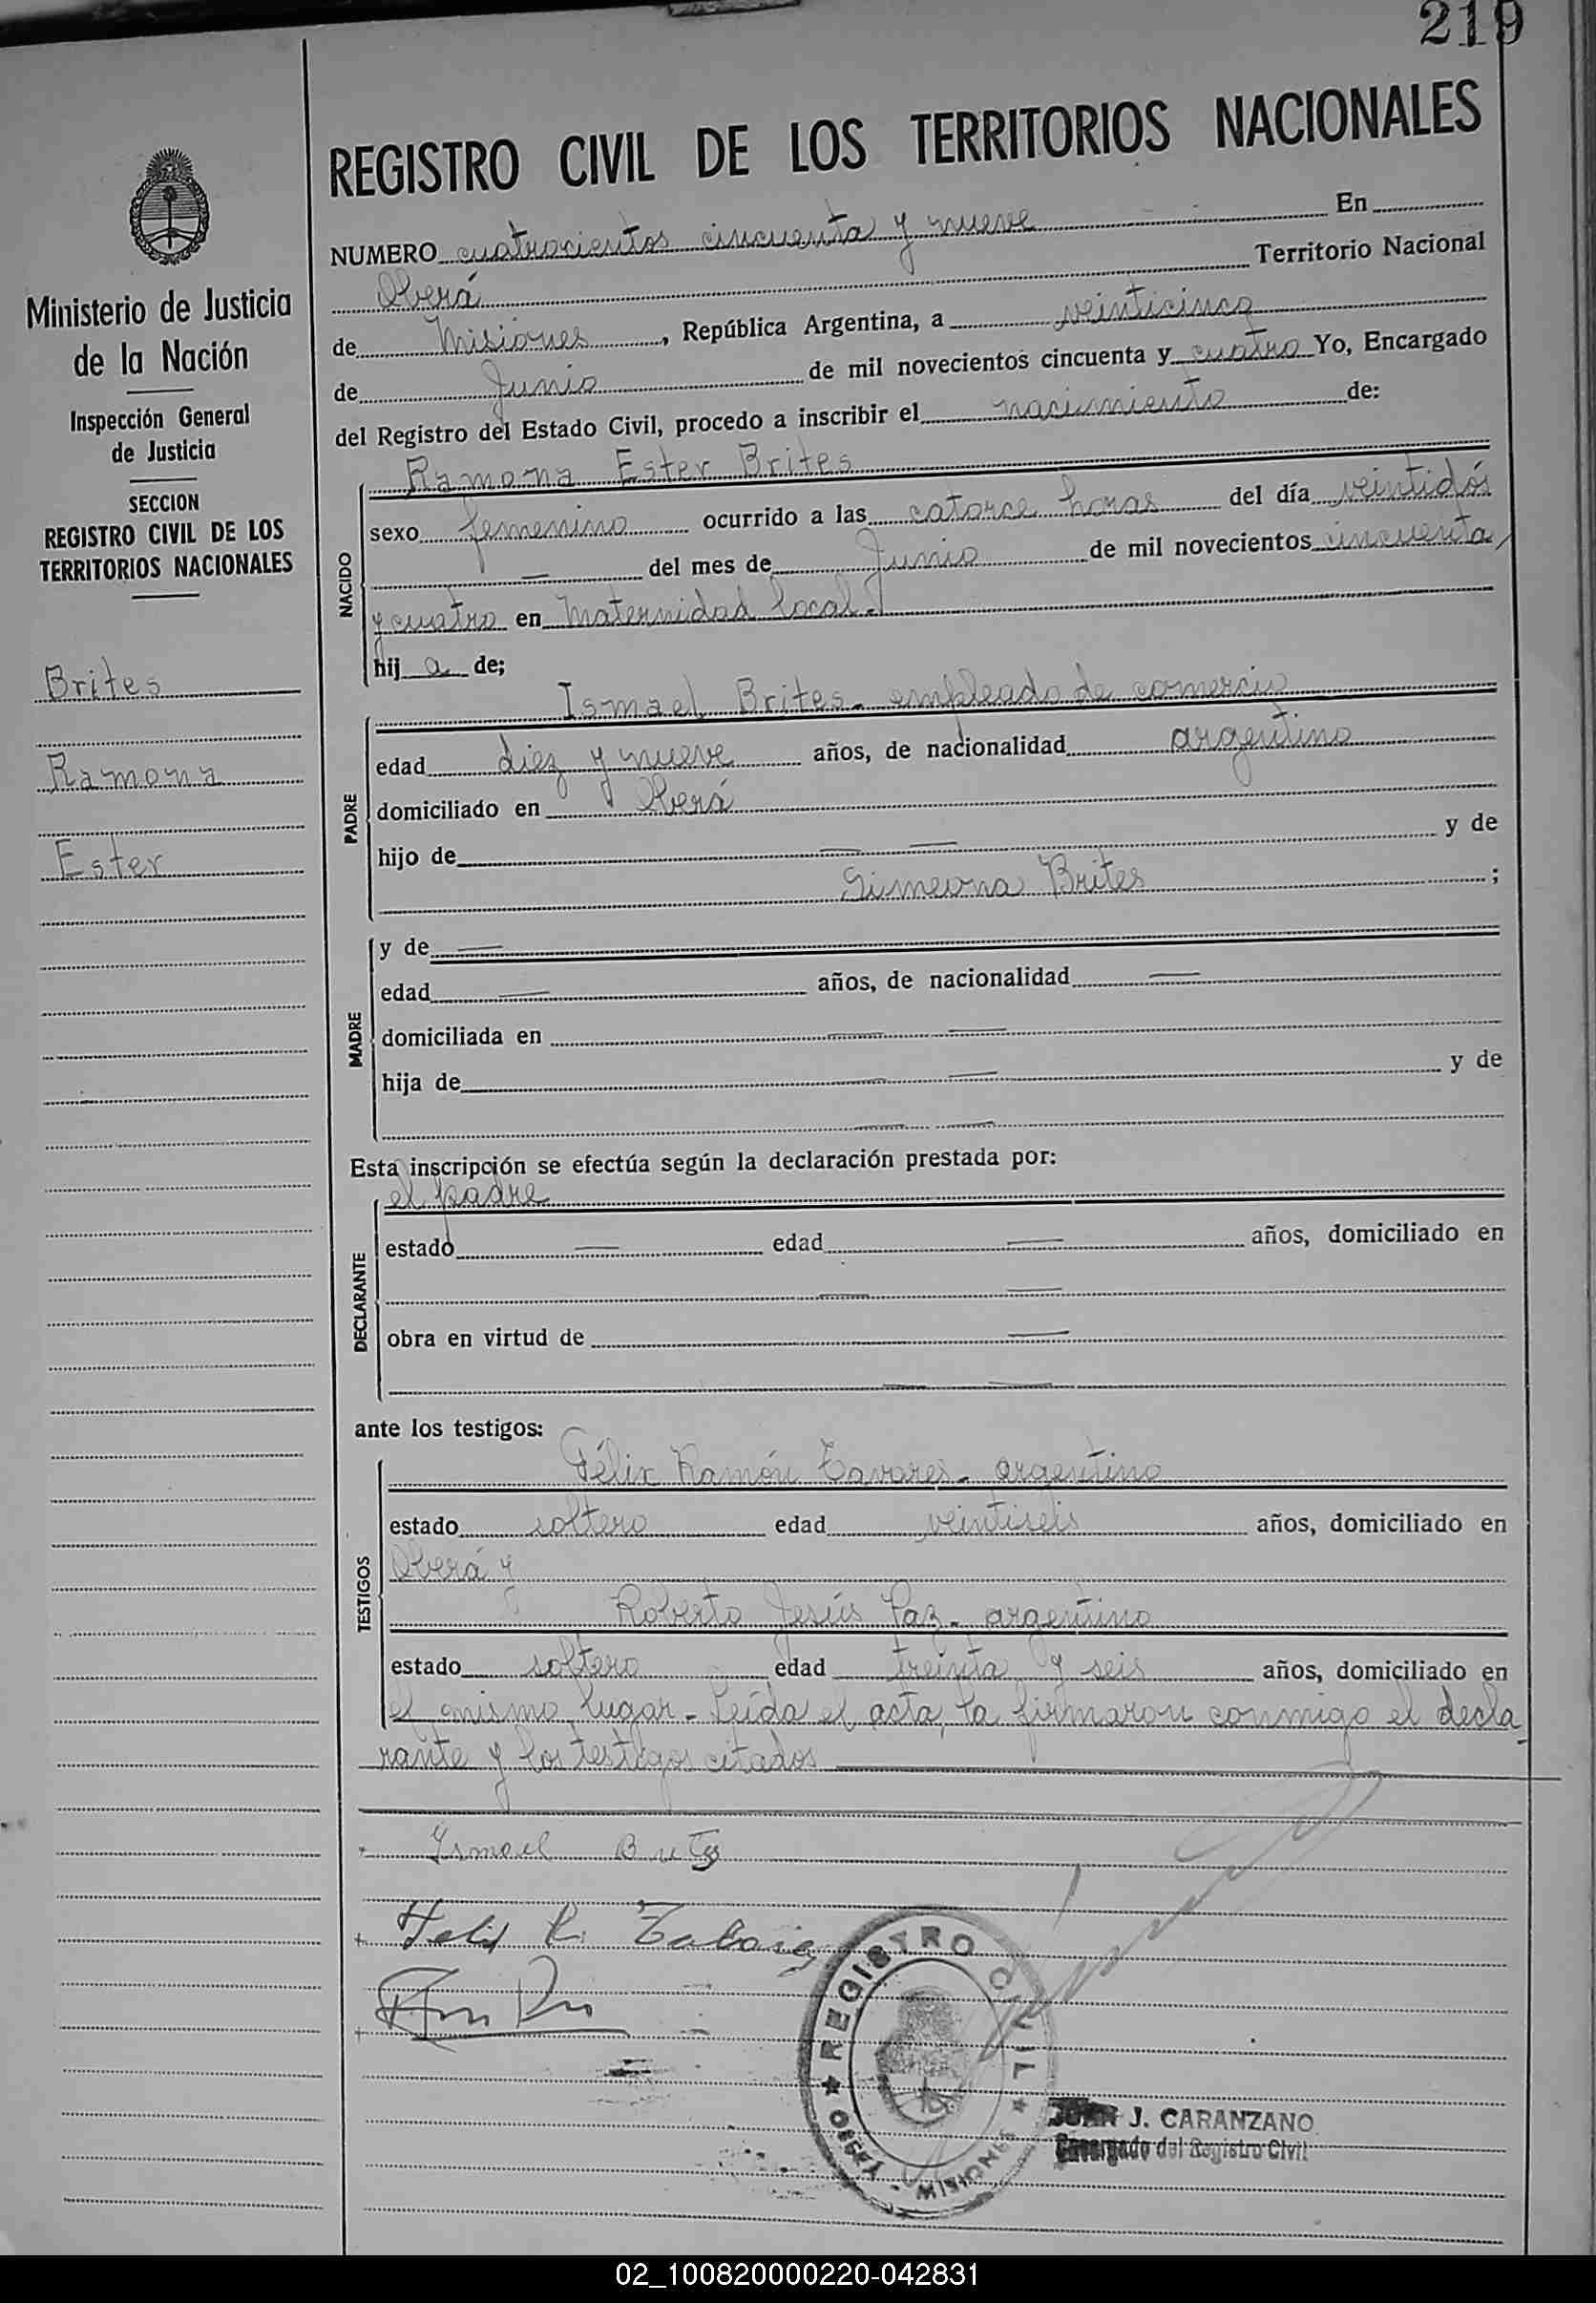 219
REGISTRO CIVIL DE LOS TERRITORIOS NACIONALES
Ministerio de Justicia
de la Nación
Inspección General
de Justicia
SECCION
REGISTRO CIVIL DE LOS
TERRITORIOS NACIONALES
Brites
Ramona
Ester
NUMERO cuatrocientos cincuenta y nueve En
Oberá Territorio Nacional
de Misiones, República Argentina, a veinticinco
de Junio de mil novecientos cincuenta y cuatro Yo, Encargado
del Registro del Estado Civil, procedo a inscribir el nacimiento de:
NACIDO
Ramona Ester Brites
sexo femenino ocurrido a las catorce horas del día veintidós
— del mes de Junio de mil novecientos cincuenta
y cuatro en Maternidad local.
hij a de;
PADRE
Ismael Brites - empleado de comercio
edad diez y nueve años, de nacionalidad argentino
domiciliado en Oberá
hijo de — — y de
Simeona Brites ;
MADRE
y de —
edad — años, de nacionalidad —
domiciliada en — —
hija de — — y de
— —
Esta inscripción se efectúa según la declaración prestada por:
DECLARANTE
el padre
estado — edad — años, domiciliado en
— —
obra en virtud de —
— —
ante los testigos:
TESTIGOS
Félix Ramón Tavares - argentino
estado soltero edad veintiseis años, domiciliado en
Oberá y
Roberto Jesús Paz - argentino
estado soltero edad treinta y seis años, domiciliado en
el mismo lugar - Leída el acta, la firmaron conmigo el decla
rante y los testigos citados
Ismael Brites
Felix R.
REGISTRO CIVIL
OBERÁ - MISIONES
JUAN J. CARANZANO
Encargado del Registro Civil
02_100820000220-042831